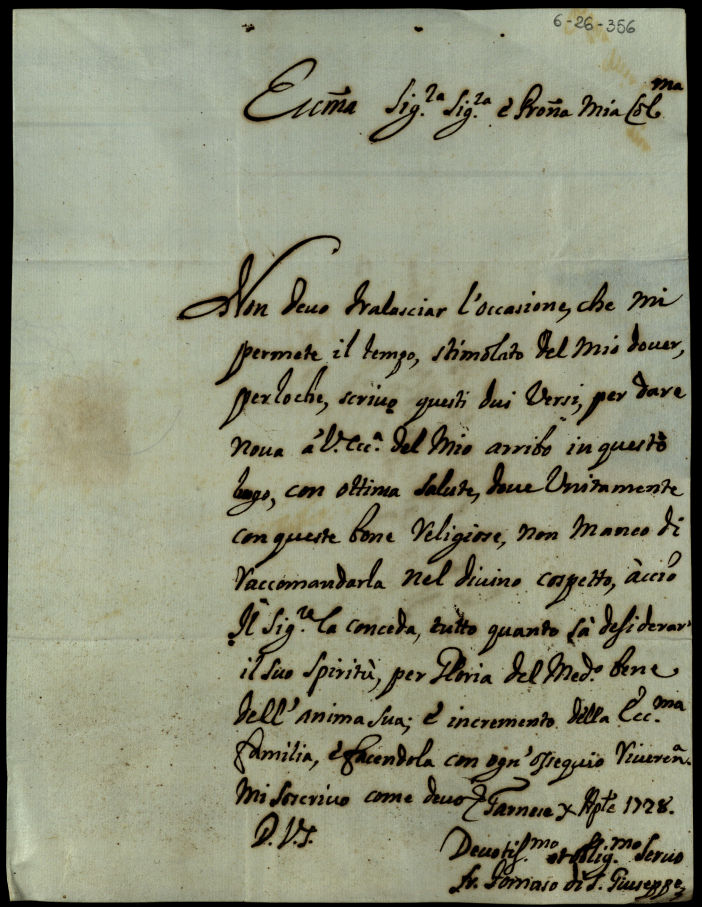 6-26-356
Eccm̃a Sig.ra Sig.ra è Proñа Mia Col.ma
Non devo tralasciar l'occasione, che mi
permete il tempo, stimolato del Mio dover,
perloche, scrivo questi dui Versi, per dare
nova à V. Ecc.a del Mio arribo in questo
logo, con ottima salute, dove Unitamente
con queste bone Religiose, non Manco di
Raccomandarla nel divino cospetto, àcciò
Il Sig.re la conceda, tutto quanto sà desiderar
il suo Spiritù, per Gloria del Med.o bene
dell'anima sua; è incremento della Ecc.ma
familia, è facendola con ogn'ossequio Riveren.a
Mi soscrivo come devo Farnese X Aple 1728.
D. V. S.
Devotis.mo et oblig.mo Servo
fr. Tomaso di S. Giuseppe